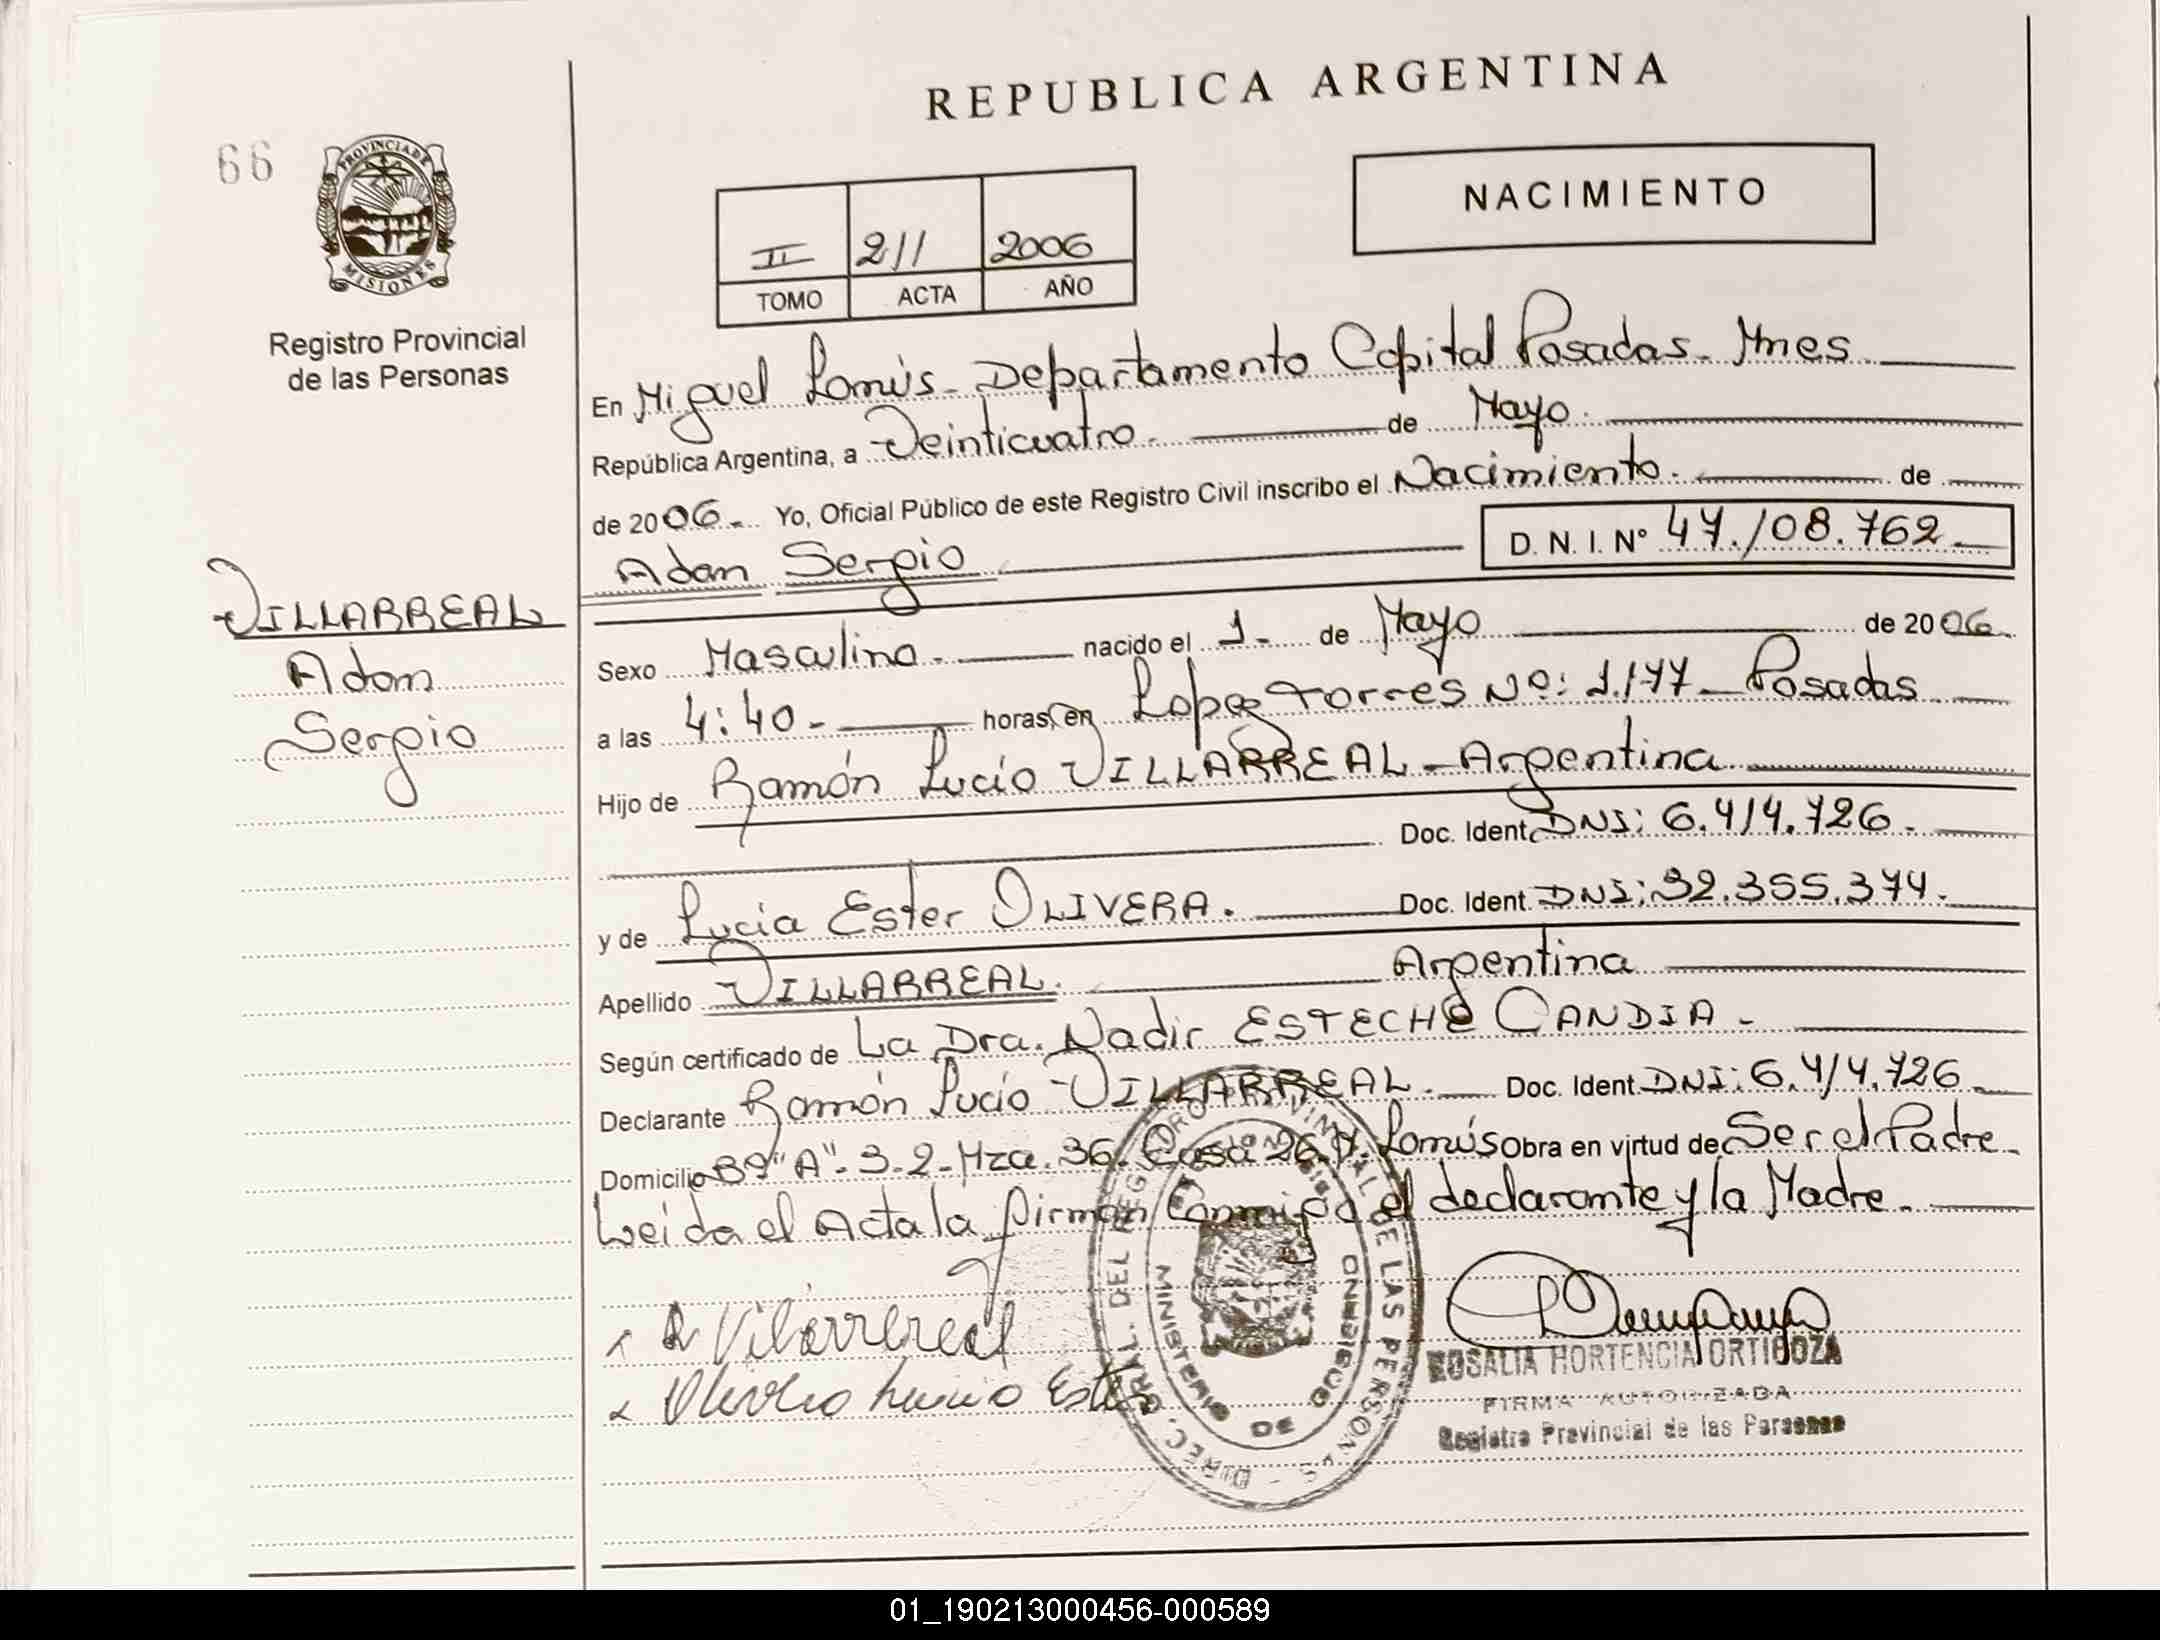 REPUBLICA ARGENTINA
66
PROVINCIA DE
MISIONES
NACIMIENTO
II 211 2006
TOMO ACTA AÑO
Registro Provincial
de las Personas
En Miguel Lanús - Departamento Capital Posadas - Mnes
República Argentina, a Veinticuatro. de Mayo.
de 2006. Yo, Oficial Público de este Registro Civil inscribo el Nacimiento. de
Adan Sergio D. N. I. Nº 47.108.762
VILLARREAL
Adan
Sergio
Sexo Masculino. nacido el 1. de Mayo de 2006.
a las 4:40 - horas, en Lopez Torres Nº: 1.177 - Posadas
Hijo de Ramón Lucio VILLARREAL - Argentina
Doc. Ident. DNI: 6.414.726.
y de Lucia Ester OLIVERA. Doc. Ident. DNI: 32.355.374.
Apellido VILLARREAL. Argentina
Según certificado de La Dra. Nadir ESTECHE CANDIA -
Declarante Ramón Lucio VILLARREAL. Doc. Ident. DNI: 6.414.726
Domicilio Bº "A" - 3-2 - Mza. 36. Casa 26. M. Lanús Obra en virtud de Ser el Padre.
Leida el Acta la firman Conmigo el declarante y la Madre.
R Vilarrereal
Ester
DIREC. GRAL. DEL REGISTRO PROVINCIAL DE LAS PERSONAS
MINISTERIO DE GOBIERNO
ROSALIA HORTENCIA ORTIGOZA
FIRMA AUTORIZADA
Registro Provincial de las Personas
01_190213000456-000589